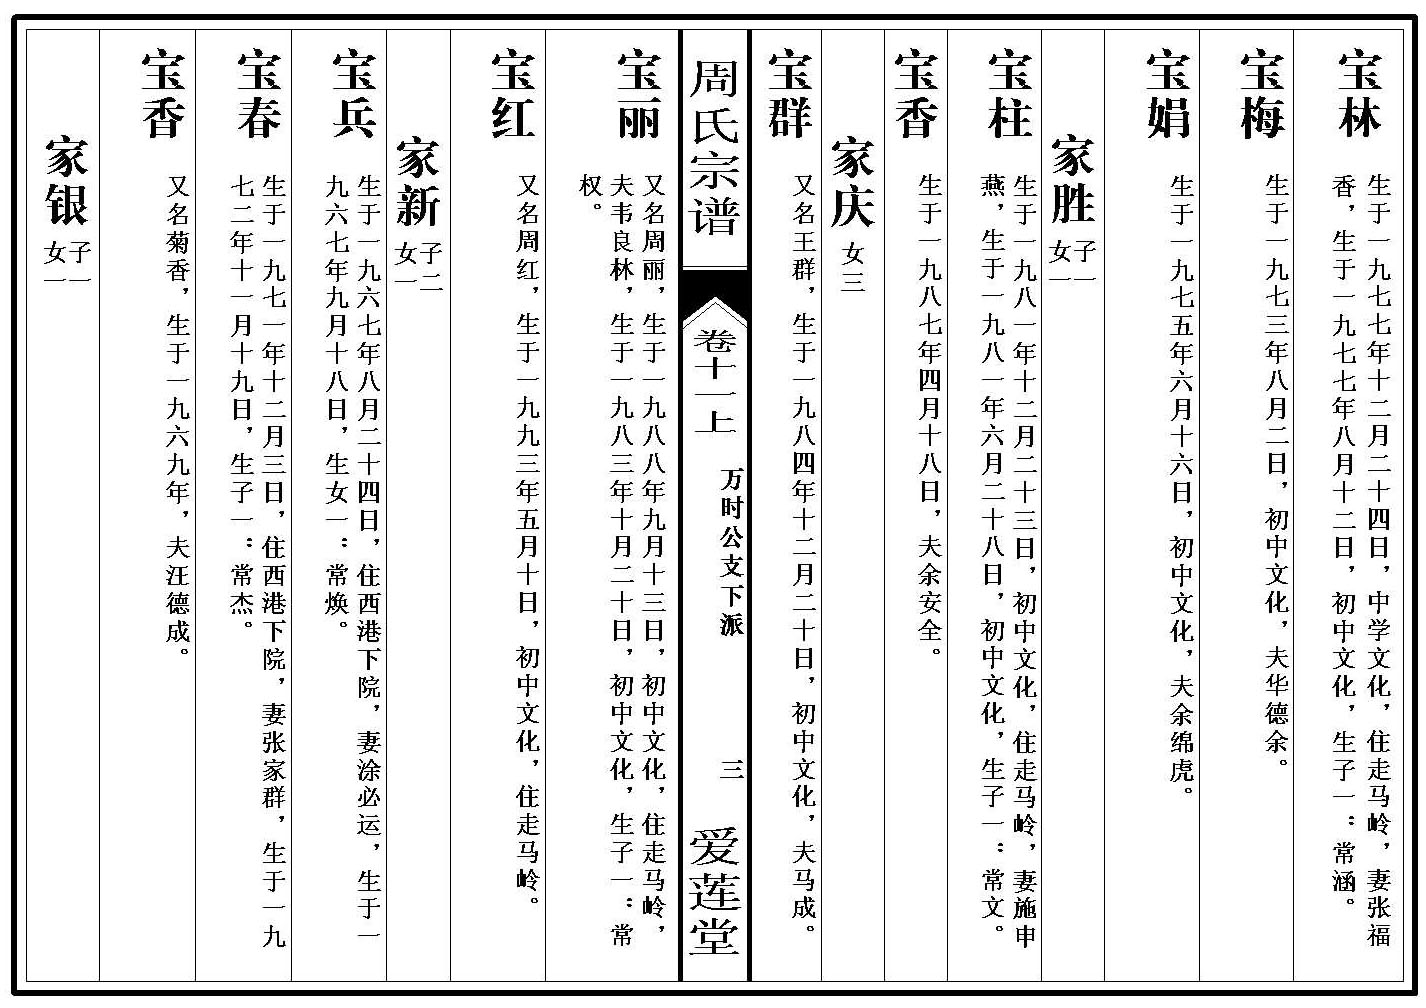 宝林
生于一九七七年十二月二十四日，中学文化，住走马岭，妻张福
香，生于一九七七年八月十二日，初中文化，生子一：常涵。
宝梅
生于一九七三年八月二日，初中文化，夫华德余。
宝娟
生于一九七五年六月十六日，初中文化，夫余绵虎。
家胜
子一
女一
宝柱
生于一九八一年十二月二十三日，初中文化，住走马岭，妻施申
燕，生于一九八一年六月二十八日，初中文化，生子一：常文。
宝香
生于一九八七年四月十八日，夫余安全。
家庆
女三
宝群
又名王群，生于一九八四年十二月二十日，初中文化，夫马成。
周氏宗谱
卷十一上
万时公支下派
三
爱莲堂
宝丽
又名周丽，生于一九八八年九月十三日，初中文化，住走马岭，
夫韦良林，生于一九八三年十月二十日，初中文化，生子一：常
权。
宝红
又名周红，生于一九九三年五月十日，初中文化，住走马岭。
家新
子二
女一
宝兵
生于一九六七年八月二十四日，住西港下院，妻涂必运，生于一
九六七年九月十八日，生女一：常焕。
宝春
生于一九七一年十二月三日，住西港下院，妻张家群，生于一九
七二年十一月十九日，生子一：常杰。
宝香
又名菊香，生于一九六九年，夫汪德成。
家银
子一
女一